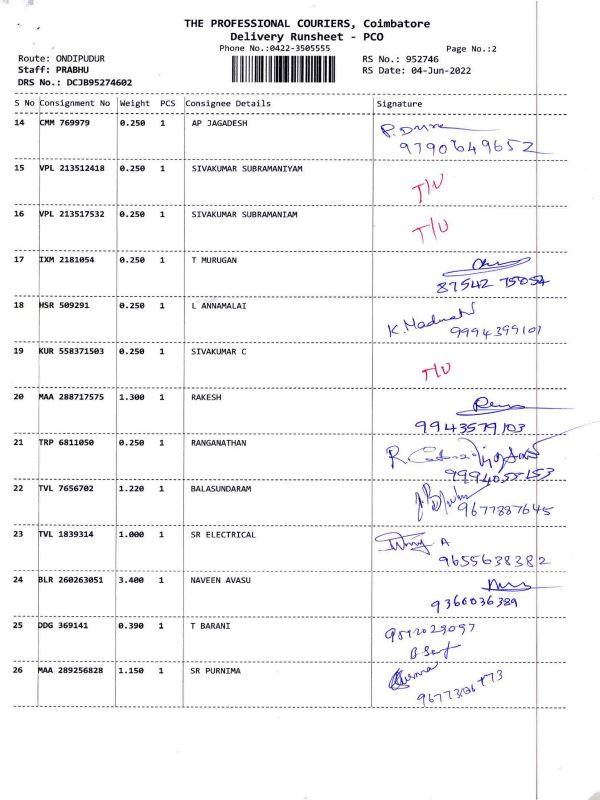 THE PROFESSIONAL COURIERS, Coimbatore
Delivery Runsheet - PCO
Phone No.:0422-3505555
Page No.:2
Route: ONDIPUDUR
RS No.: 952746
Staff: PRABHU
RS Date: 04-Jun-2022
DRS No.: DCJB95274602
S No Consignment No Weight PCS Consignee Details Signature
14 CMM 769979 0.250 1 AP JAGADESH
9790649652
15 VPL 213512418 0.250 1 SIVAKUMAR SUBRAMANIYAM T/U
16 VPL 213517532 0.250 1 SIVAKUMAR SUBRAMANIAM T/U
17 IXM 2181054 0.250 1 T MURUGAN
87542 75054
18 HSR 509291 0.250 1 L ANNAMALAI
9994399101
19 KUR 558371503 0.250 1 SIVAKUMAR C T/U
20 MAA 288717575 1.300 1 RAKESH
9943579103
21 TRP 6811050 0.250 1 RANGANATHAN
9994055153
22 TVL 7656702 1.220 1 BALASUNDARAM
9677887645
23 TVL 1839314 1.000 1 SR ELECTRICAL
9655638382
24 BLR 260263051 3.400 1 NAVEEN AVASU
9360036389
25 DDG 369141 0.390 1 T BARANI
26 MAA 289256828 1.150 1 SR PURNIMA